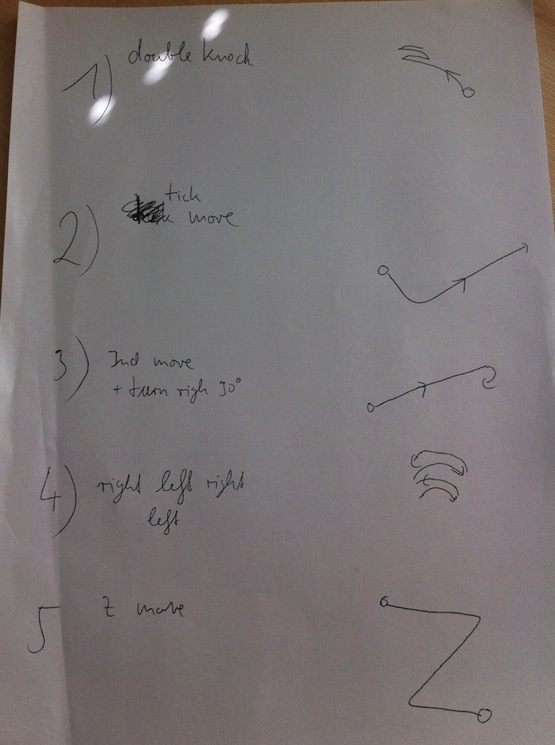 1) double knock
tick
2) move
3) Ind move
+ turn righ 30°
4) right left right
left
5 Z move